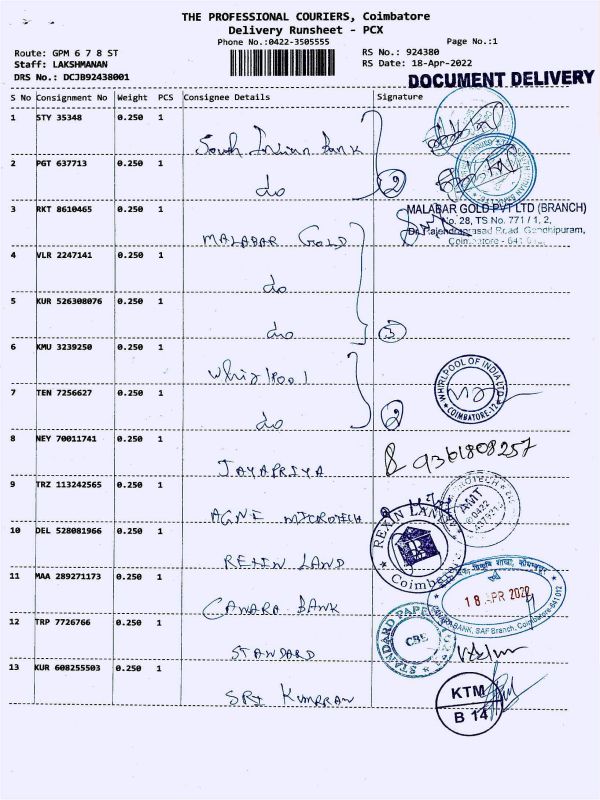 THE PROFESSIONAL COURIERS, Coimbatore
Delivery Runsheet - PCX
Phone No.:0422-3505555 Page No.:1
Route: GPM 6 7 8 ST RS No.: 924380
Staff: LAKSHMANAN RS Date: 18-Apr-2022
DRS No.: DCJB92438001
DOCUMENT DELIVERY
S No Consignment No Weight PCS Consignee Details Signature
1 STY 35348 0.250 1 South Indian Bank
2 PGT 637713 0.250 1 do 2
3 RKT 8610465 0.250 1 MALABAR GOLD
MALABAR GOLD PVT LTD (BRANCH)
No. 28, TS No. 771 / 1, 2,
Dr. Rajendraprasad Road, Gandhipuram,
Coimbatore - 641
4 VLR 2247141 0.250 1 do
5 KUR 526308076 0.250 1 do 3
6 KMU 3239250 0.250 1 Whirlpool
WHIRLPOOL OF INDIA LTD.
COIMBATORE-12
7 TEN 7256627 0.250 1 do 2
8 NEY 70011741 0.250 1 JAYAPRIYA 9361808257
9 TRZ 113242565 0.250 1 AGNI MICROTECH
AMT
0422
10 DEL 528081966 0.250 1 REXIN LAND
REXIN LAND
Coimbatore
11 MAA 289271173 0.250 1 CANARA BANK
18 APR 2022
CANARA BANK, SAF Branch, Coimbatore-641012
12 TRP 7726766 0.250 1 STANDARD
STANDARD PAPER
CBE
13 KUR 608255503 0.250 1 SRI KUMRAN
KTM
B 14